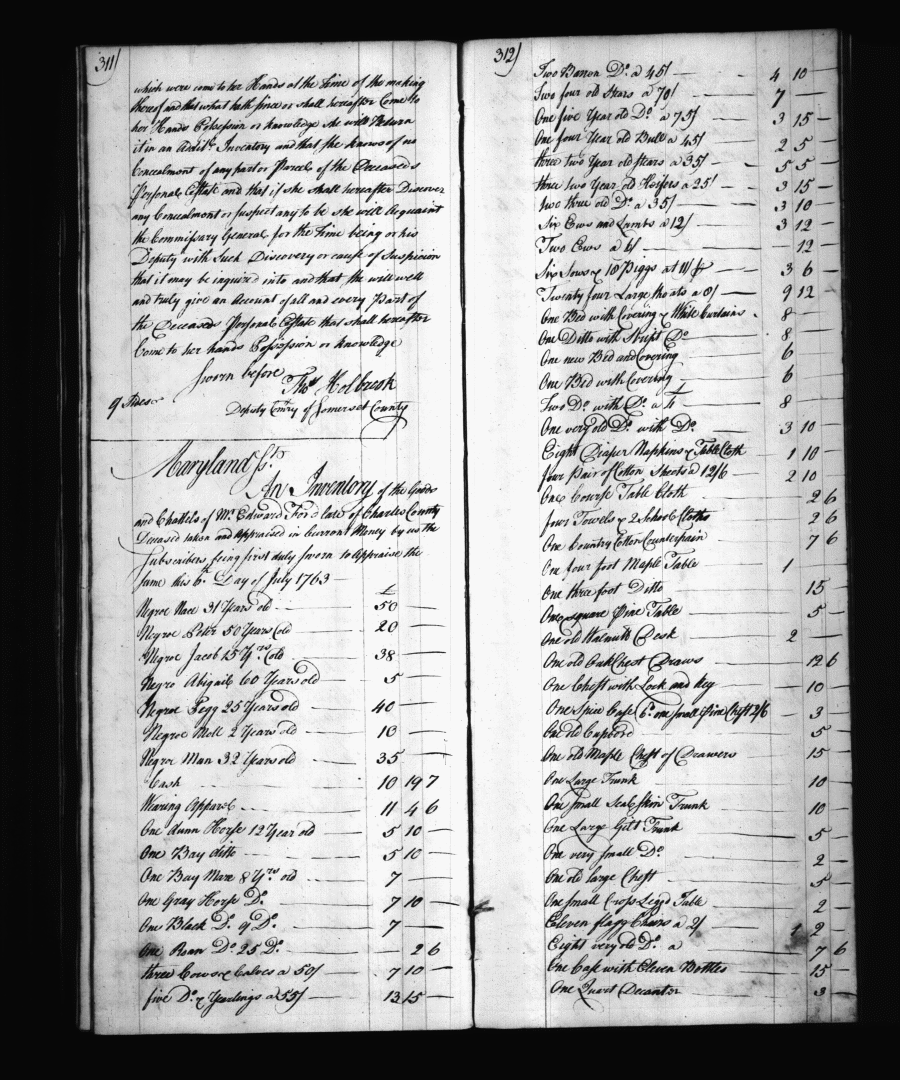 311/
which were come to her Hands at the time of the making
thereof and that what hath since or shall hereafter Come to
her Hands Possession or knowledge she will Return
it in an Addit.l Inventory and that she knows of no
Concealment of any part or Parcel of the Deceaseds
Personal Estate and that if she shall hereafter Discover
any Concealment or suspect any to be she will Acquaint
the Commissary General for the time being or his
Deputy with Such Discovery or cause of Suspicion
that it may be inquired into and that she will well
and truly give an Account of all and every Part of
the Deceaseds Personal Estate that shall hereafter
Come to her hands Possession or knowledge
Sworn before
Thos Holbrook
9 Sides
Deputy Comry of Somerset County
Maryland Ss.
An Inventory of the Goods
and Chattels of Mr. Edward Ford late of Charles County
Deceased taken and Appraised in Current Money by us the
Subscribers being first duly Sworn to Appraise the
Same this 6th Day of July 1763
£
Negroe Nace 31 Years old 50
Negroe Peter 50 Years old 20
Negroe Jacob 15 Yrs. old 38
Negro Abigail 60 Years old 5
Negroe Pegg 25 Years old 40
Negroe Moll 2 Years old 10
Negroe Man 32 Years old 35
Cash 10 19 7
Wearing Apparel 11 4 6
One dunn Horse 12 Year old 5 10
One Bay ditto 5 10
One Bay Mare 8 Yrs. old 7
One Gray Horse Do. 7 10
One Black Do. 9 Do. 7
One Roan Do. 25 Do. 2 6
three Cows & Calves a 50/ 7 10
five Do. & Yearlings a 55/ 13 15
312/
Two Barron Do. a 45/ 4 10
Two four old Stears a 70/ 7
One five Year old Do. a 75/ 3 15
One four Year old Bull a 45/ 2 5
three two Year old stears a 35/ 5 5
three two Year old Heifers a 25/ 3 15
two three old Do. a 35/ 3 10
Six Ews and Lambs a 12/ 3 12
Two Ews a 6/ 12
Six Sows & 10 Piggs at 11/ 3 6
Twenty four Large Shoats a 8/ 9 12
One Bed with Covering & White Curtains 8
One Ditto with Stript Do. 8
One new Bed and Covering 6
One Bed with Covering 6
Two Do. with Do. a £4 8
One very old Do. with Do. 3 10
Eight Diaper Napkins & Table Cloth 1 10
four Pair of Cotton Sheets a 12/6 2 10
One Course Table Cloth 2 6
four Towels & 2 Cloths 2 6
One Country Cotton Counterpain 7 6
One four foot Maple Table 1
One three foot Ditto 15
One square Pine Table 5
One old Walnutt Desk 2
One old Oak Chest Draws 12 6
One Chest with Lock and Key 10
One Spice Case 6d one small Pine Chest 2/6 3
One old Cupbord 5
One old Maple Chest of Drawers 15
One Large Trunk 10
One small Seal Skin Trunk 10
One Large Gilt Trunk 5
One very small Do. 2
One old large Chest 5
One small Cross Leg'd Table 2
Eleven flagg Chairs a 2/ 1 2
Eight very old Do. a 7 6
One Case with Eleven Bottles 15
One Quart Decanter 3